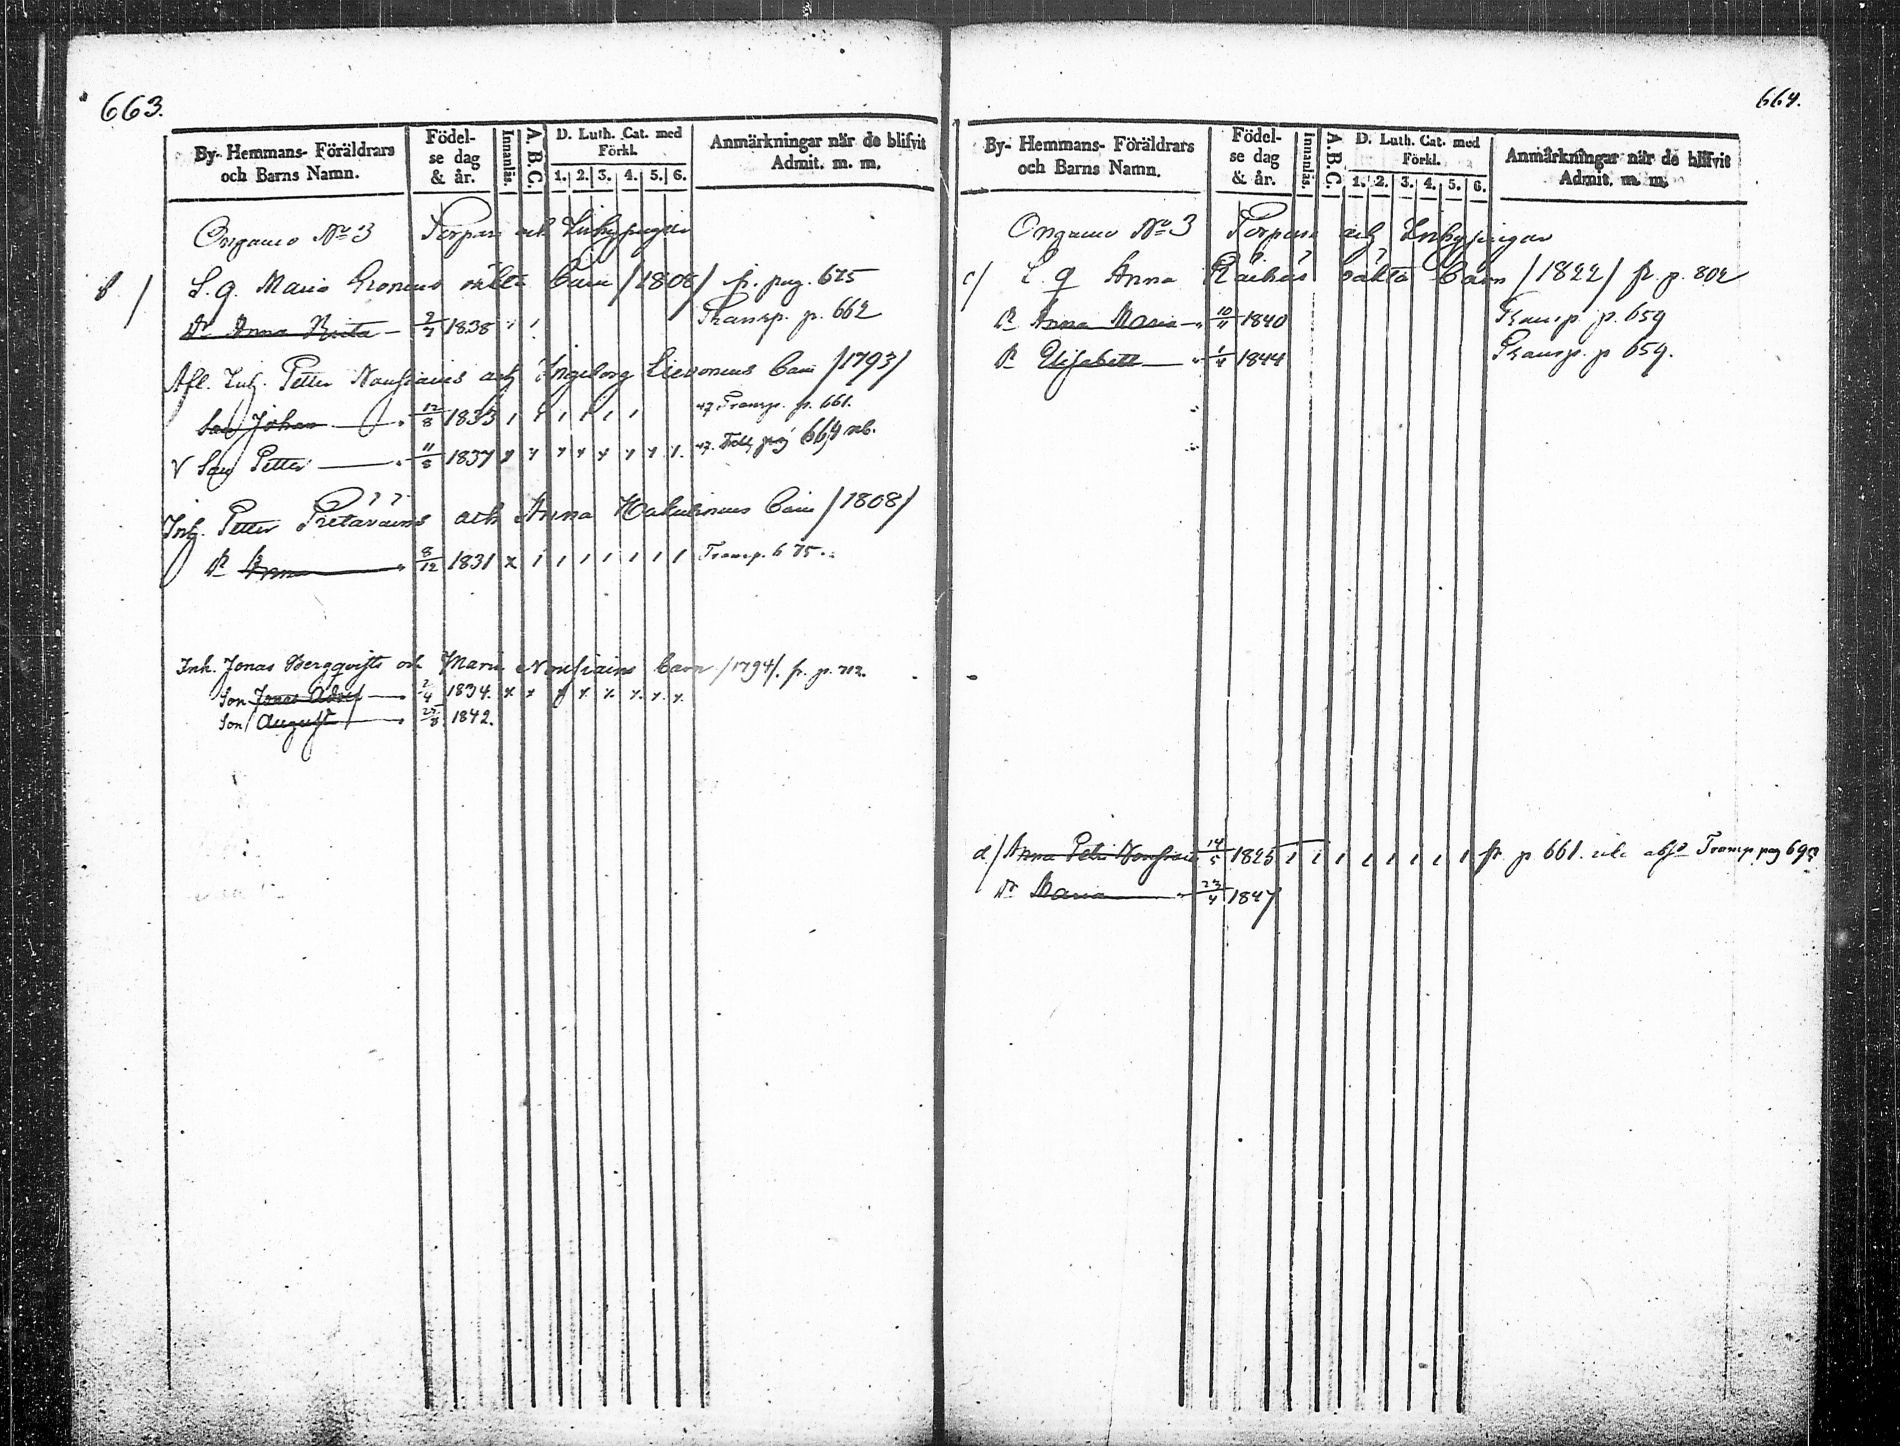 663.
By- Hemmans- Föräldrars och Barns Namn.
Födel- se dag & år.
Innanläs.
A. B. C.
D. Luth. Cat. med Förkl.
1. 2. 3. 4. 5. 6.
Anmärkningar när de blifvit Admit. m. m.
Ongamo No 3 Torpare och Inhysingar
b / L. q. Maria oäkta Barn /1808/ fr. pag. 675
Dr Anna Brita 2/7 1838 Transp. p. 662
Afl. Inh. Petter Nousiains och Ingeborg Barn /1793/
Son Johan 12/8 1833 47 Transp. p. 661.
V Son Petter 1837 47. pag 664 nb.
Inh. Petter och Anna Barn /1808/
Dr Anna 8/12 1831 Transp. 675.
Inh. Jonas Bergqvists och Maria Nousiains Barn /1794/. fr. p. 712.
Son Jonas Adolf 2/4 1834.
Son August 1842.
664.
By- Hemmans- Föräldrars och Barns Namn.
Födel- se dag & år.
Innanläs.
A. B. C.
D. Luth. Cat. med Förkl.
1. 2. 3. 4. 5. 6.
Anmärkningar när de blifvit Admit. m. m.
Ongamo No 3 Torpare och Inhysingar
c/ L. q Anna Räihäs oäkta Barn /1822/ fr p. 802
Dr Anna Maria 10/11 1840 Transp. p. 659
Dr Elisabeth 1/4 1844 Transp. p 659.
d/ Anna Petri Nousiain 14/5 1825 fr p 661. Transp. pag
Dr Maria 23/4 1847